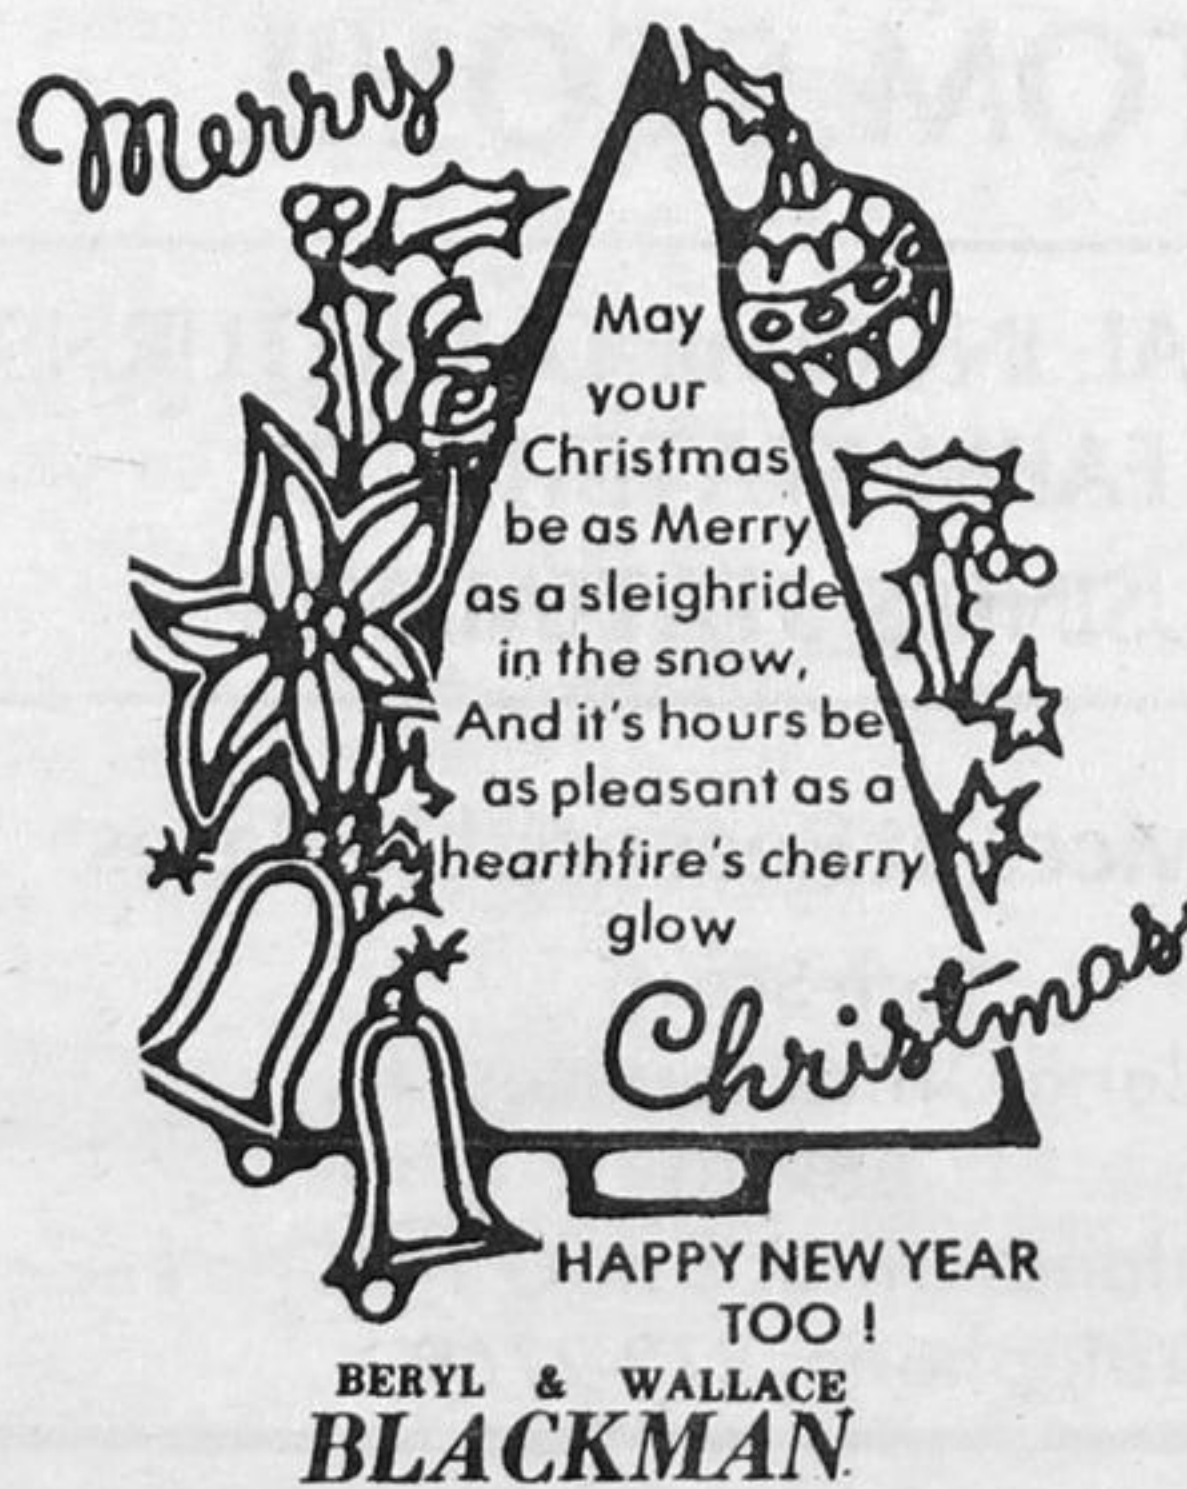 Merry
May
your
Christmas
be as Merry
as a sleighride
in the snow,
And it's hours be
as pleasant as a
hearthfire's cherry
glow
Christmas
HAPPY NEW YEAR
TOO !
BERYL & WALLACE
BLACKMAN